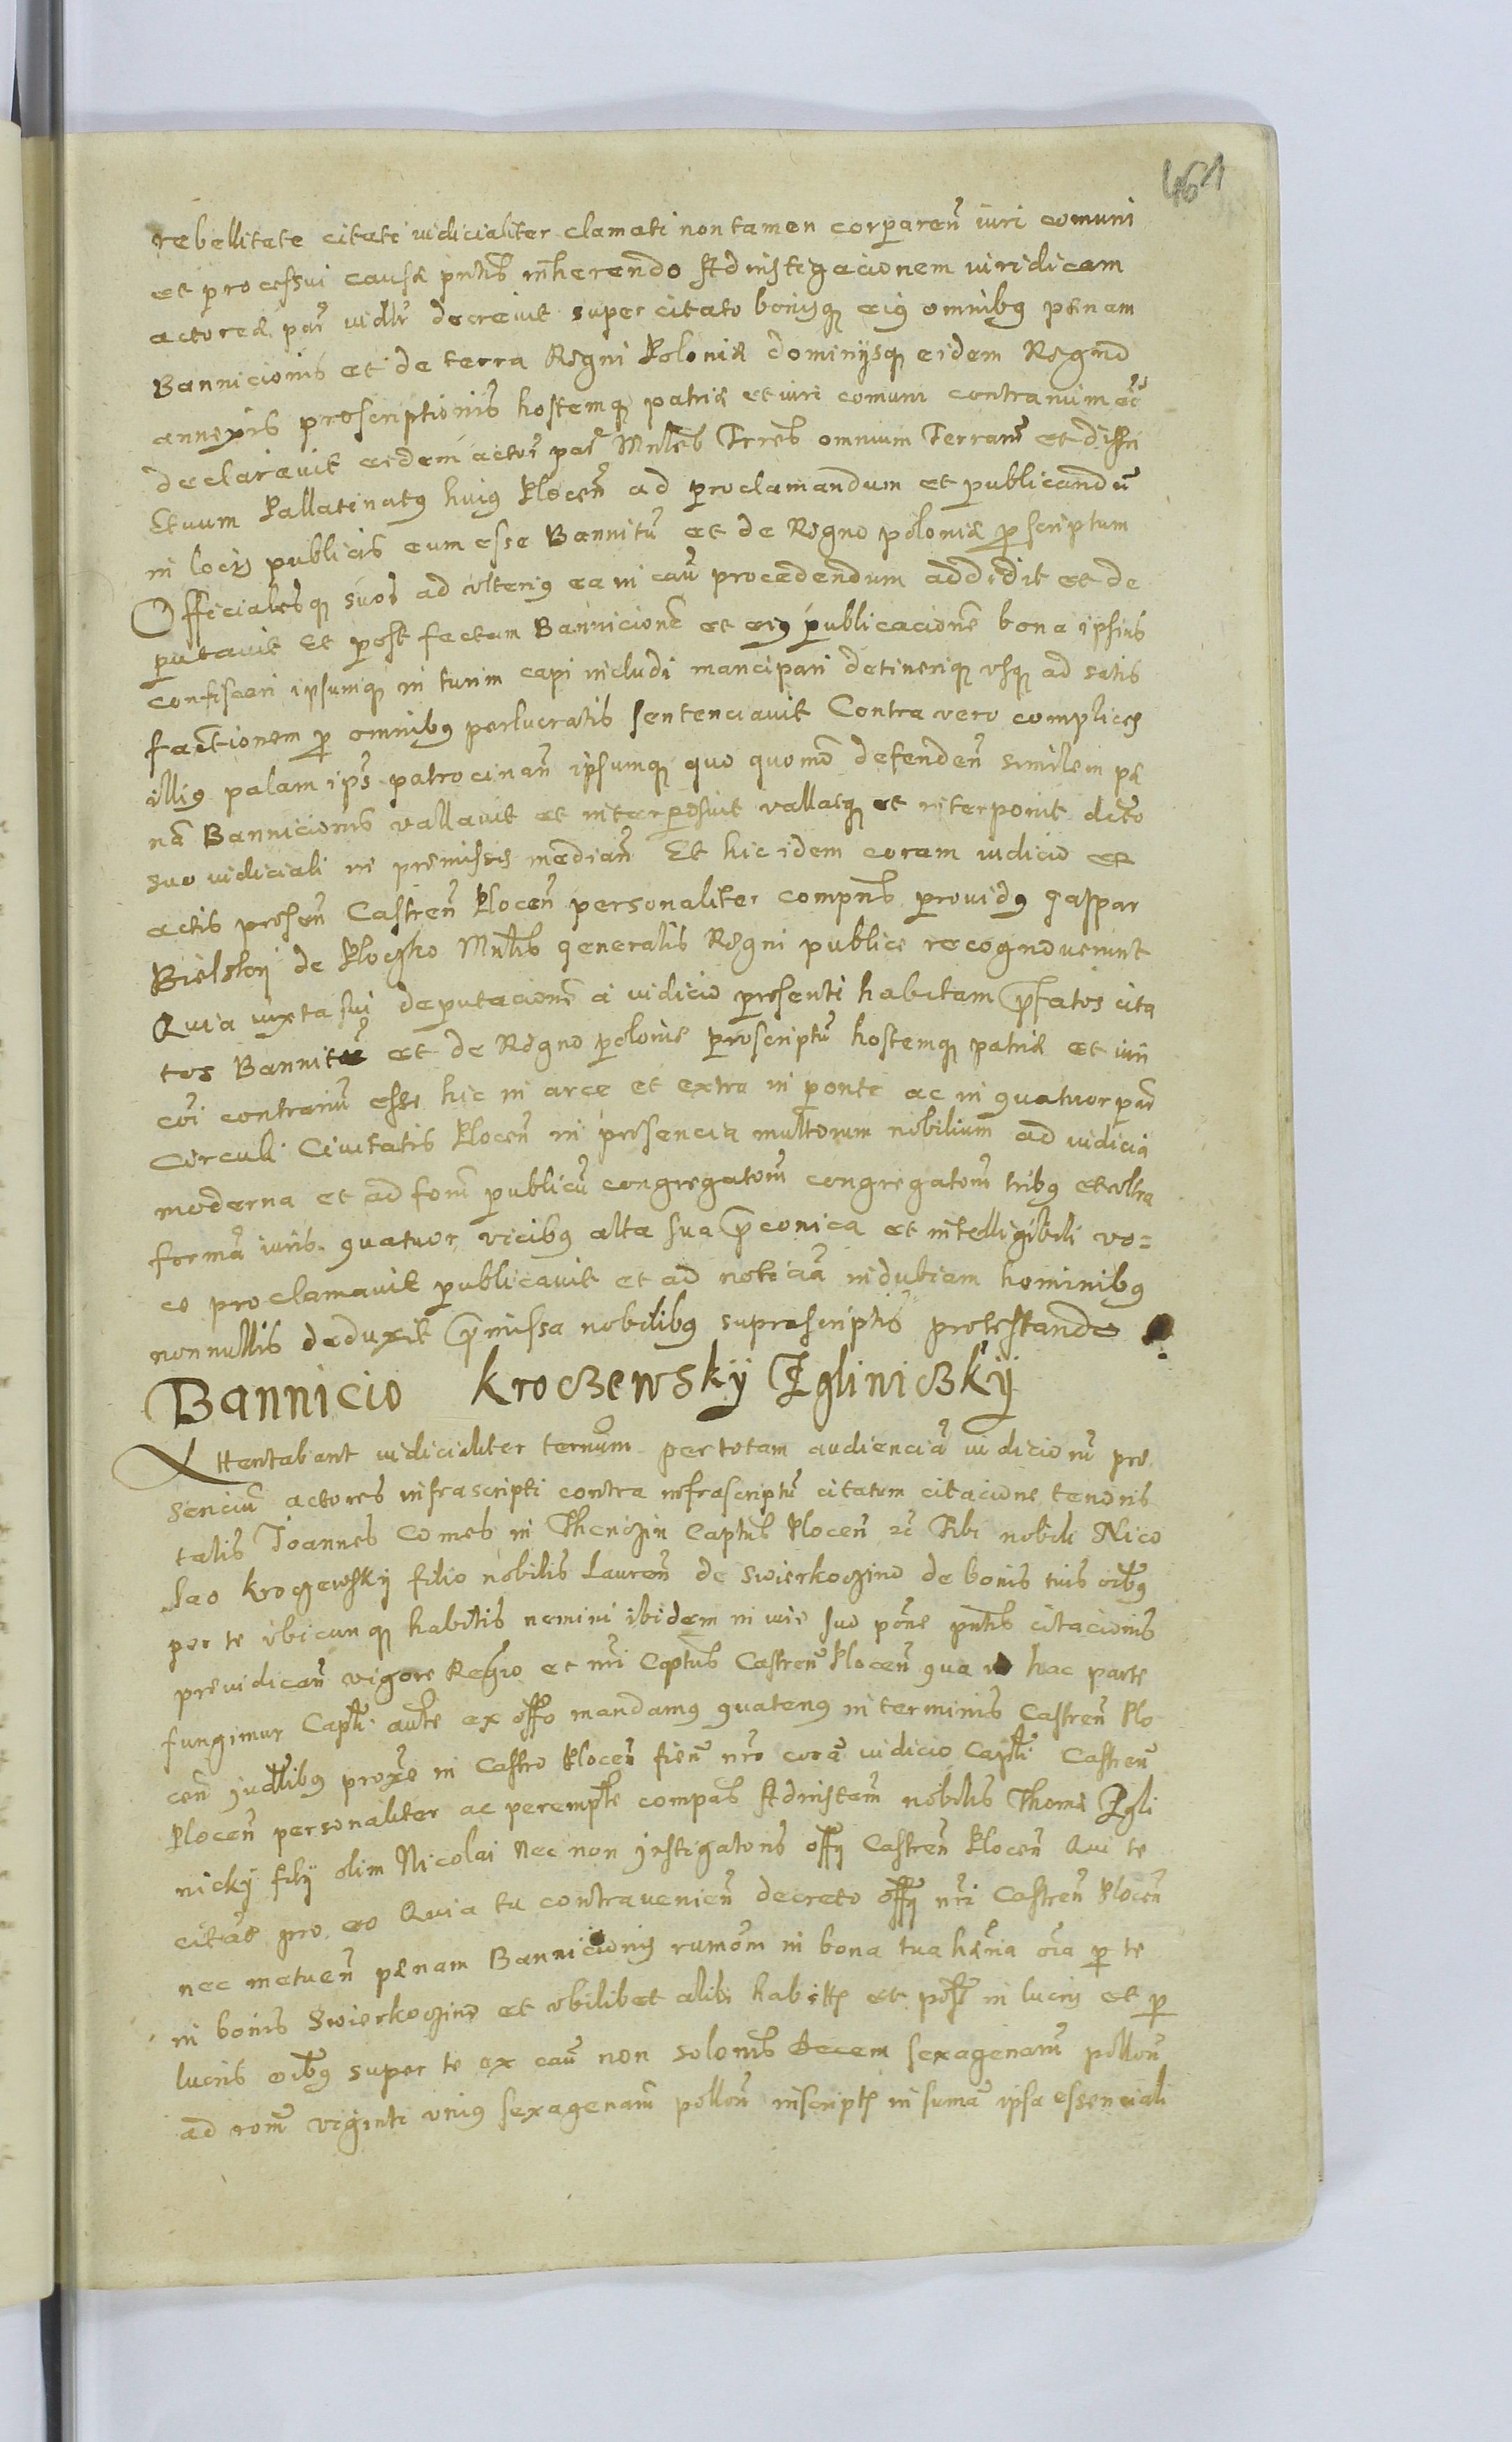 461
rebellitate citati iudicialiter clamati non tamen corparen̄ iuri comuni
et processui causæ pn̄tis inherendo Ad instigacionem iuridicam
actoreæ par̄ iudr̄ decrevit super citato bonisq̨ eiq omnibq pænam
Bannicionis et de terra Regni Poloniæ dominijsq̨ eidem Regno
annexis proscriptionis hostemq̨ patriæ et iuri comuni contrarium eē
declaravit eidem actor̄ par̄ Mnles Trres omnium Terrarū et distri
ctuum Pallatinatq huiq Plocen̄ ad proclamandum et publicandū
in locis publicis eum esse Bannitū et de Regno poloniæ p̄scriptum
Officialesq̨ suos ad vlteriq ea in caū procedendum addidit et de
putavit Et post factum Bannicionē et eiq publicacionē bona ipsius
confiscari ipsumq̨ in turim capi includi mancipari detineriq̨ vsq̨ ad satis
factionem p̄ omnibq perlucratis sentenciavit Contra vero complices
illiq palam ips̄ patrocinan̄ ipsumq̨ quo quomo defenden̄ similem pæ
nā Bannicionis vallavit et interposuit vallatq̨ et interponit dcto
suo iudiciali in premissis median̄ Et hic idem coram iudicio et
actis presen̄ Castren̄ Plocen̄ personaliter compns providq Gaspar
Bielsky de Ploczko Mnlis generalis Regni publice recognoverunt
Quia iuxta sui deputacionē a iudicio presenti habitam p̄fatos cita
tos Bannitū et de Regno polonie proscriptū hostemq̨ patriæ et iuri
cōi contrariū esse hic in arce et extra in ponte ac in quatuor par̄
Circuli Civitatis Plocen̄ in presencia multorum nobilium ad iudicia
moderna et ad forū publicū congregatorū congregatorū tribq et vltra
formā iuris quatuor vicibq alta sua p̄conica et intelligibili vo=
ce proclamavit publicavit et ad noticiā indubiam hominibq
nonnullis deduxit p̄missa nobilibq suprascriptis protestando
Bannicio Kroczewsky Igliniczkij
Attentabant iudicialiter ternum per totam audienciā iudiciorū pre
senciū actores infrascripti contra infrascriptū citatum citacione tenoris
talis Joannes Comes in Thenczin Captns Plocen̄ zc̄ Tibi nobili Nico
lao Kroczewskij filio nobilis Lauren̄ de Swierkoczino de bonis tuis oībq
per te vbicunq̨ habitis nemini ibidem in iure suo pōne pn̄tis citacionis
preiudicān vigore Regio et nr̄i Captns Castren̄ Plocen̄ qua in hac parte
fungimur Captli aute ex offo mandamq quatenq in terminis Castren̄ Plo
cen̄ judlibq proxe in Castro Plocen̄ fien̄ nr̄o corā iudicio Captli Castren̄
Plocen̄ personaliter ac perempte compas Ad instam̄ nobilis Thomæ Igli
nicky filij olim Nicolai Nec non jnstigatoris offij Castren̄ Plocen̄ Qui te
citāt pro eo Quia tu contravenien̄ decreto offij nr̄i Castren̄ Plocen̄
nec metuen̄ pænam Bannicionis rumorū in bona tua hæria oīa p̄ te
in bonis Swierkoczino et vbilibet alibi habitt̨ et poss̄ in lucris et p̄
lucris oībq super te ex caū non solonis decem sexagenarū pollon̄
ad ronē viginti vniq sexagenarū pollon̄ inscriptt̨ in sumā ipsa essenciali